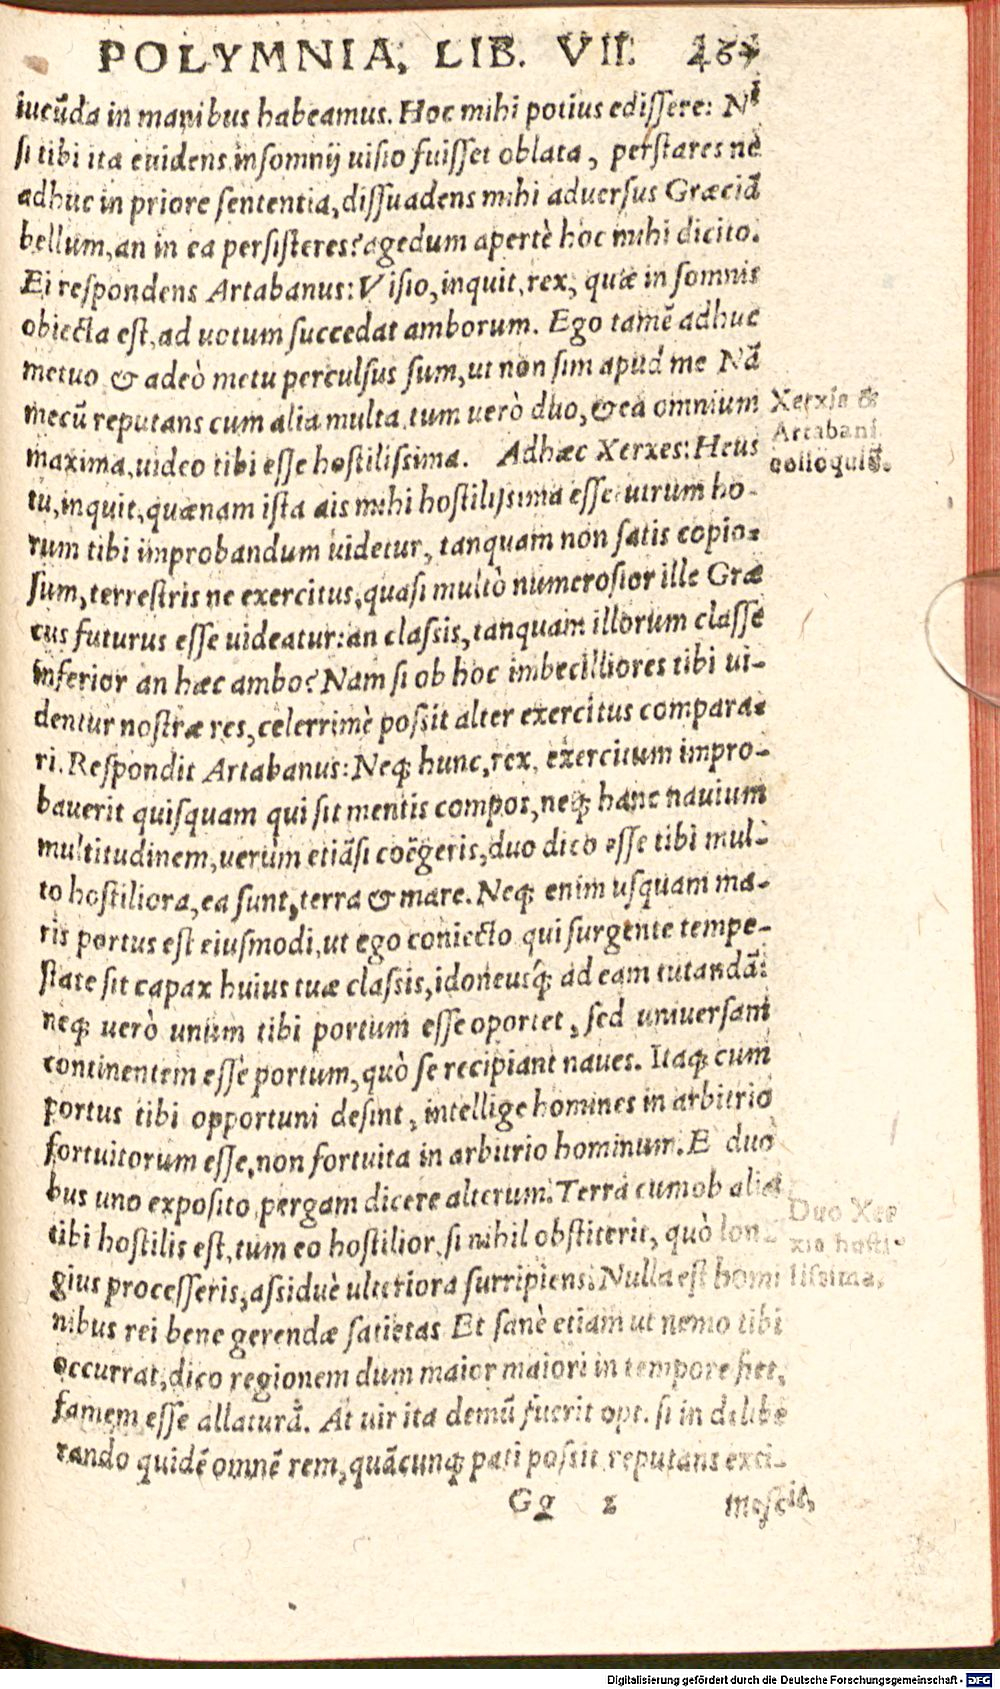 POLYMNIA, LIB. VII.
iucũda in manibus habeamus. Hoc mihi potius edissere: Ni
si tibi ita euidens insomnij uisio fuisset oblata, perstares ne
adhuc in priore sententia, dissuadens mihi aduersus Græciã
bellum, an in ea persisteres? agedum apertè hoc mihi dicito.
Ei respondens Artabanus: Visio, inquit, rex, quæ in somnis
obiecta est, ad uotum succedat amborum. Ego tamẽ adhuc
metuo & adeò metu perculsus sum, ut non sim apud me Nã
mecũ reputans cum alia multa, tum uerò duo, & ea omnium
maxima, uideo tibi esse hostilissima. Adhæc Xerxes: Heus
tu, inquit, quænam ista ais mihi hostilissima esse: utrum ho-
rum tibi improbandum uidetur, tanquam non satis copio-
sum, terrestris ne exercitus, quasi multò numerosior ille Græ
cus futurus esse uideatur: an classis, tanquam illorum classe
inferior an hæc ambo? Nam si ob hoc imbecilliores tibi ui-
dentur nostræ res, celerrimè possit alter exercitus compara-
ri. Respondit Artabanus: Neq; hunc, rex, exercitum impro-
bauerit quisquam qui sit mentis compos, neq; hanc nauium
multitudinem, uerùm etiãsi coẽgeris, duo dico esse tibi mul-
to hostiliora, ea sunt, terra & mare. Neq; enim usquam ma-
ris portus est eiusmodi, ut ego coniecto qui surgente tempe-
state sit capax huius tuæ classis, idoneusq́; ad eam tutandã:
neq; uerò unum tibi portum esse oportet, sed uniuersam
continentem esse portum, quò se recipiant naues. Itaq; cum
portus tibi opportuni desint, intellige homines in arbitrio
fortuitorum esse, non fortuita in arbitrio hominum. E duo
bus uno exposito pergam dicere alterum. Terra cum ob alia
tibi hostilis est, tum eo hostilior, si nihil obstiterit, quò lon-
gius processeris, assiduè ulteriora surripiens. Nulla est homi
nibus rei bene gerendæ satietas Et sanè etiam ut nemo tibi
occurrat, dico regionem dum maior maiori in tempore fiet,
famem esse allaturã. At uir ita demũ fuerit opt. si in delibe
rando quidẽ omnẽ rem, quãcunq; pati possit reputans exti-
Gg 2 mescit,
Xerxis &
Artabani
colloquiũ.
Duo Xer
xis hosti-
lissima.
Digitalisierung gefördert durch die Deutsche Forschungsgemeinschaft - DFG